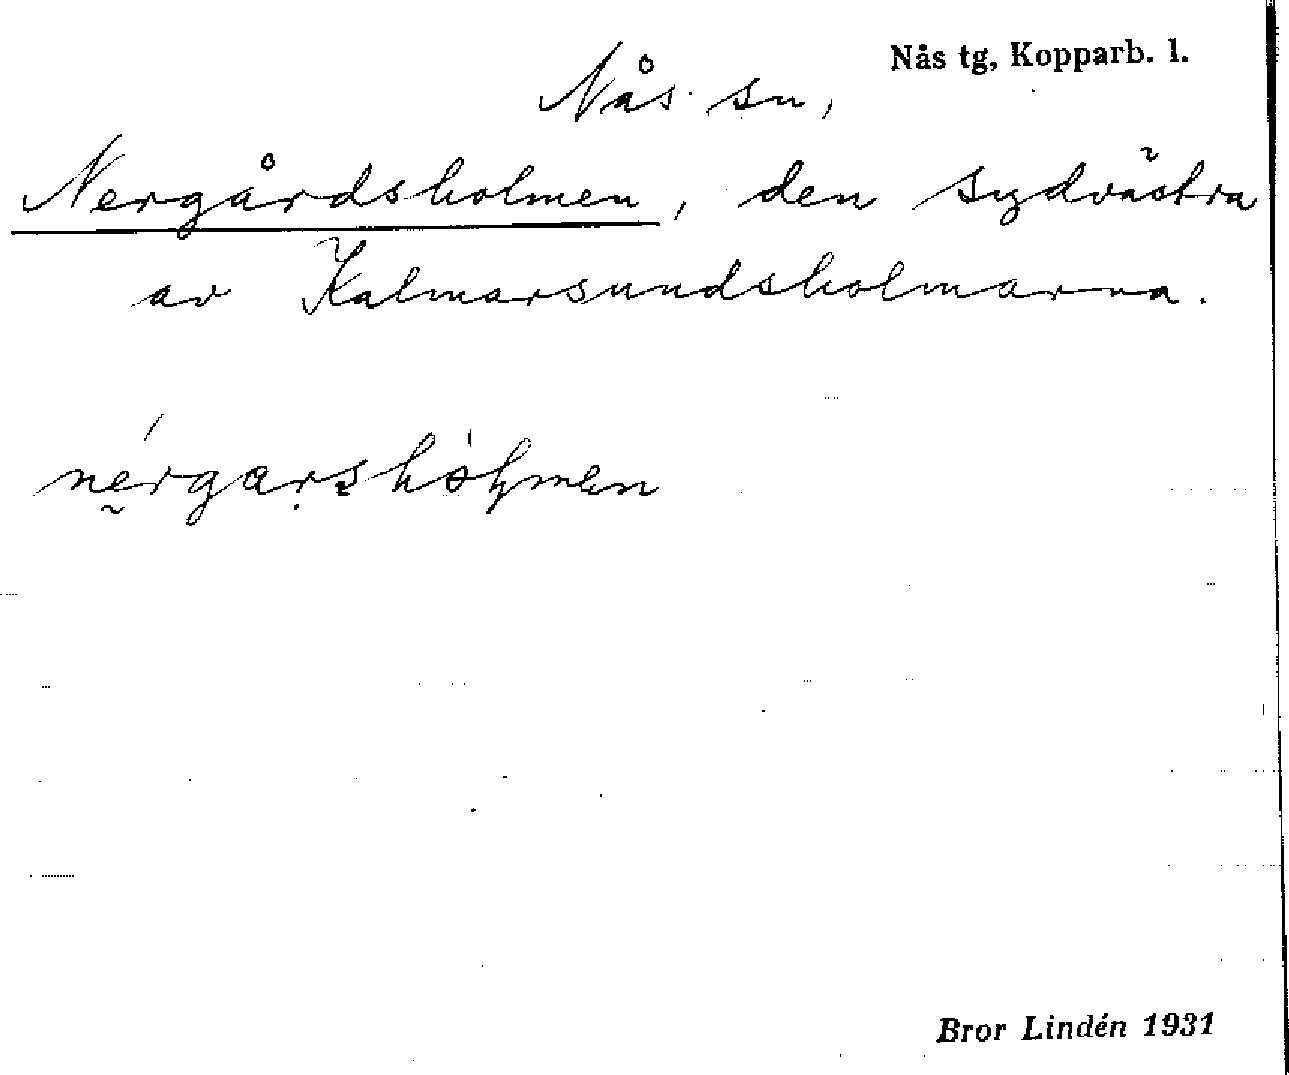 Nås tg, Kopparb. l.
Nås sn,
Nergårdsholmen, den sydvästra
av Kalmarsundsholmarna.
nérgarshólmen
Bror Lindén 1931